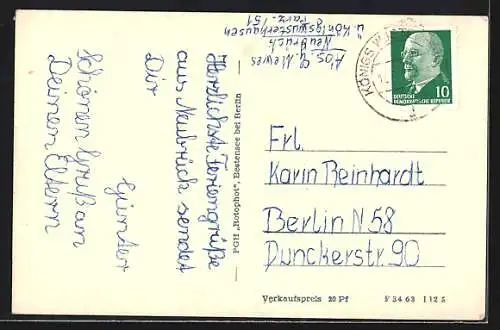 Abs. G. Mewes
Neubrück
Parz. 151
ü. Königswusterhausen
Herzlichste Feriengrüße
aus Neubrück sendet
Dir
Günter
Schönen Gruß an
Deinen Eltern
PGH „Rotophot", Bestensee bei Berlin
KÖNIGS W
DEUTSCHE
DEMOKRATISCHE REPUBLIK
10
Frl.
Karin Reinhardt
Berlin N 58
Dunckerstr. 90
Verkaufspreis 20 Pf F 34 63 I 12 5